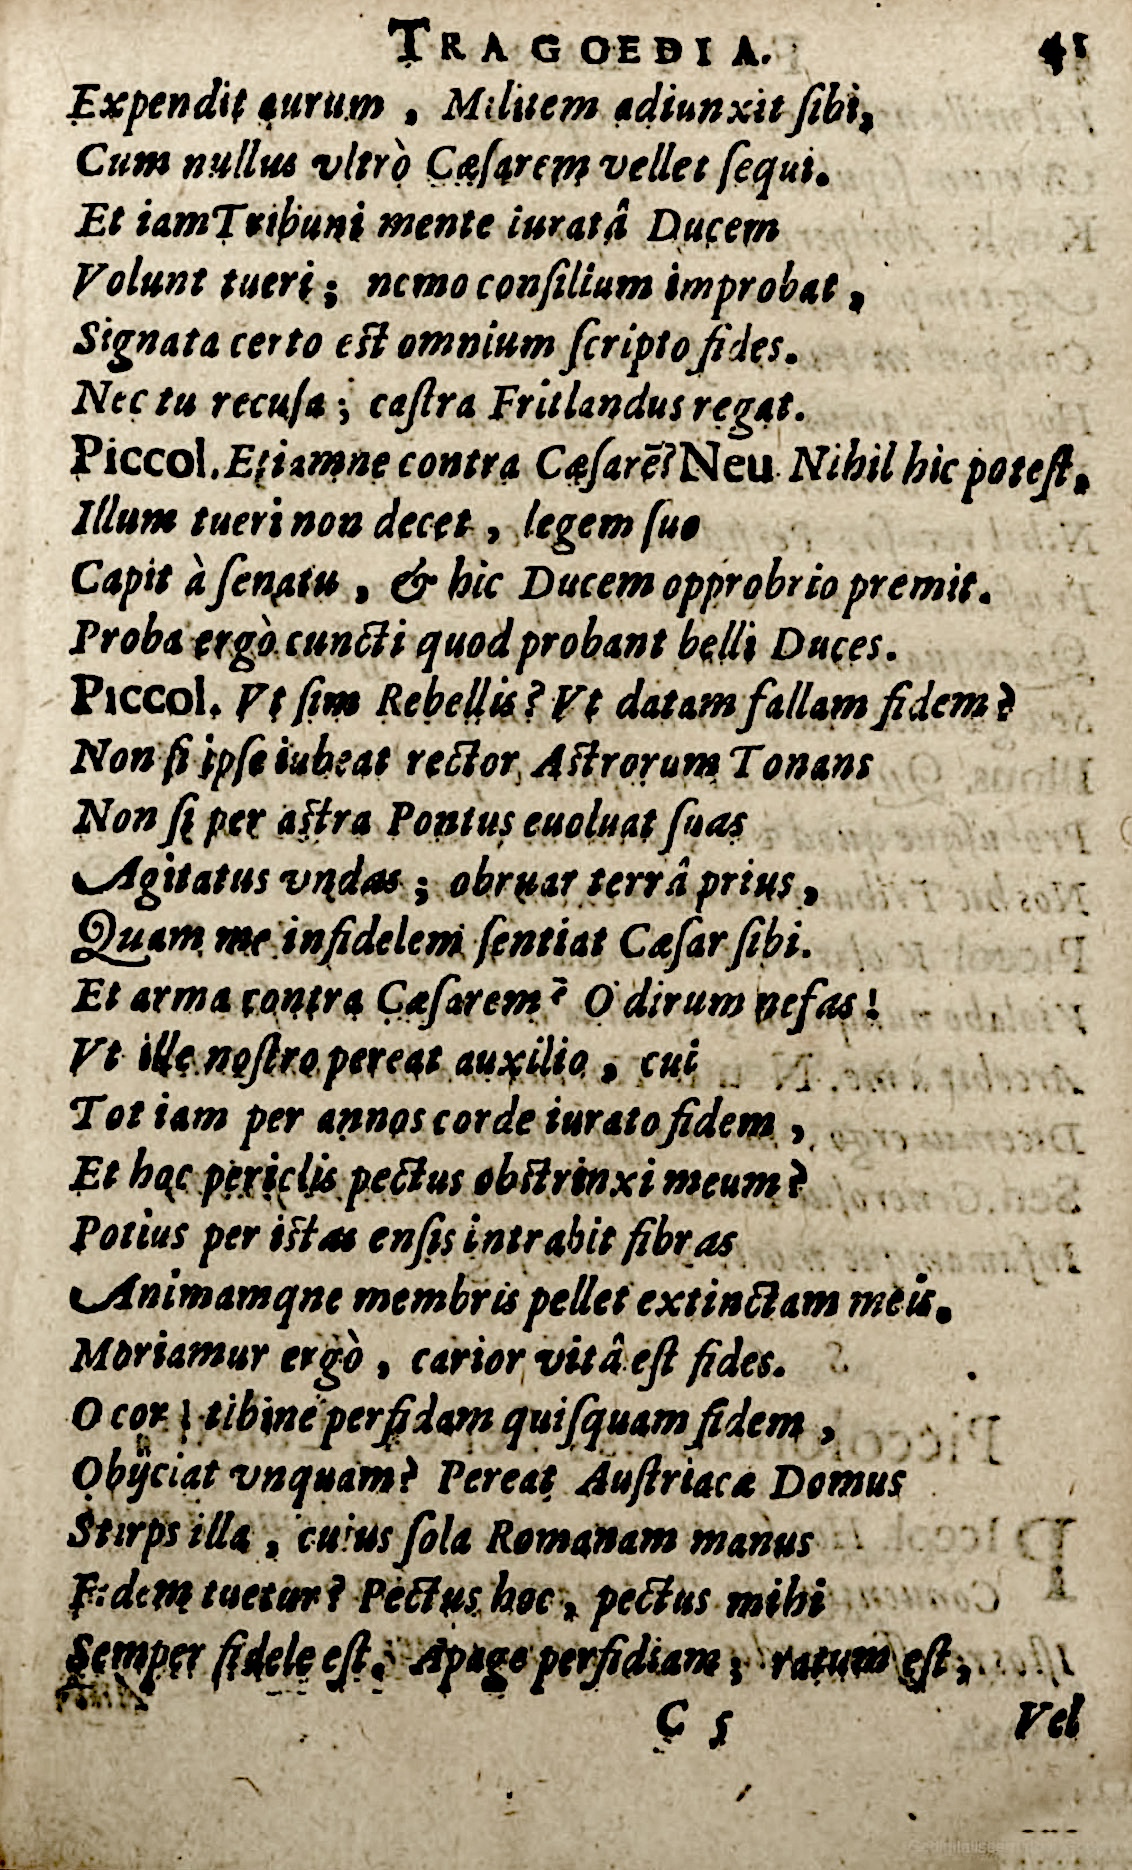 TRAGOEDIA. 41
Expendit aurum, Militem adiunxit ſibi,
Cum nullus vltrò Cæſarem vellet ſequi.
Et iam Tribuni mente iuratâ Ducem
Volunt tueri; nemo conſilium improbat,
Signata certo eſt omnium ſcripto fides.
Nec tu recuſa; caſtra Fritlandus regat.
Piccol. Etiamne contra Cæſarē? Neu. Nihil hic poteſt,
Illum tueri non decet, legem ſuo
Capit à ſenatu, & hic Ducem opprobrio premit.
Proba ergò cuncti quod probant belli Duces.
Piccol. Vt ſim Rebellis? Vt datam fallam fidem?
Non ſi ipſe iubeat rector Aſtrorum Tonans
Non ſi per aſtra Pontus euoluat ſuas
Agitatus vndas; obruar terrâ prius,
Quam me infidelem ſentiat Cæſar ſibi.
Et arma contra Cæſarem? O dirum nefas!
Vt ille noſtro pereat auxilio, cui
Tot iam per annos corde iurato fidem,
Et hoc periclis pectus obſtrinxi meum?
Potius per iſtas enſis intrabit fibras
Animamqne membris pellet extinctam meis.
Moriamur ergò, carior vitâ eſt fides.
O cor! tibine perfidam quiſquam fidem,
Obijciat vnquam? Pereat Auſtriacæ Domus
Stirps illa, cuius ſola Romanam manus
Fidem tuetur? Pectus hoc, pectus mihi
Semper fidele eſt. Apage perfidiam; ratum eſt,
C 5 Vel